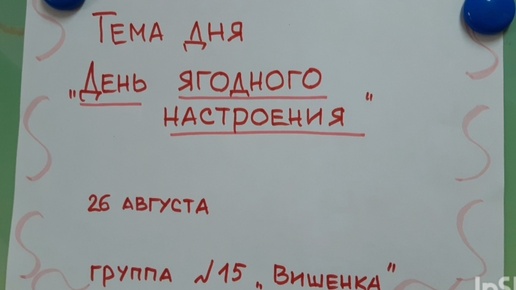 Тема дня
„День ягодного
настроения"
26 августа
группа №15 „Вишенка"
InSh